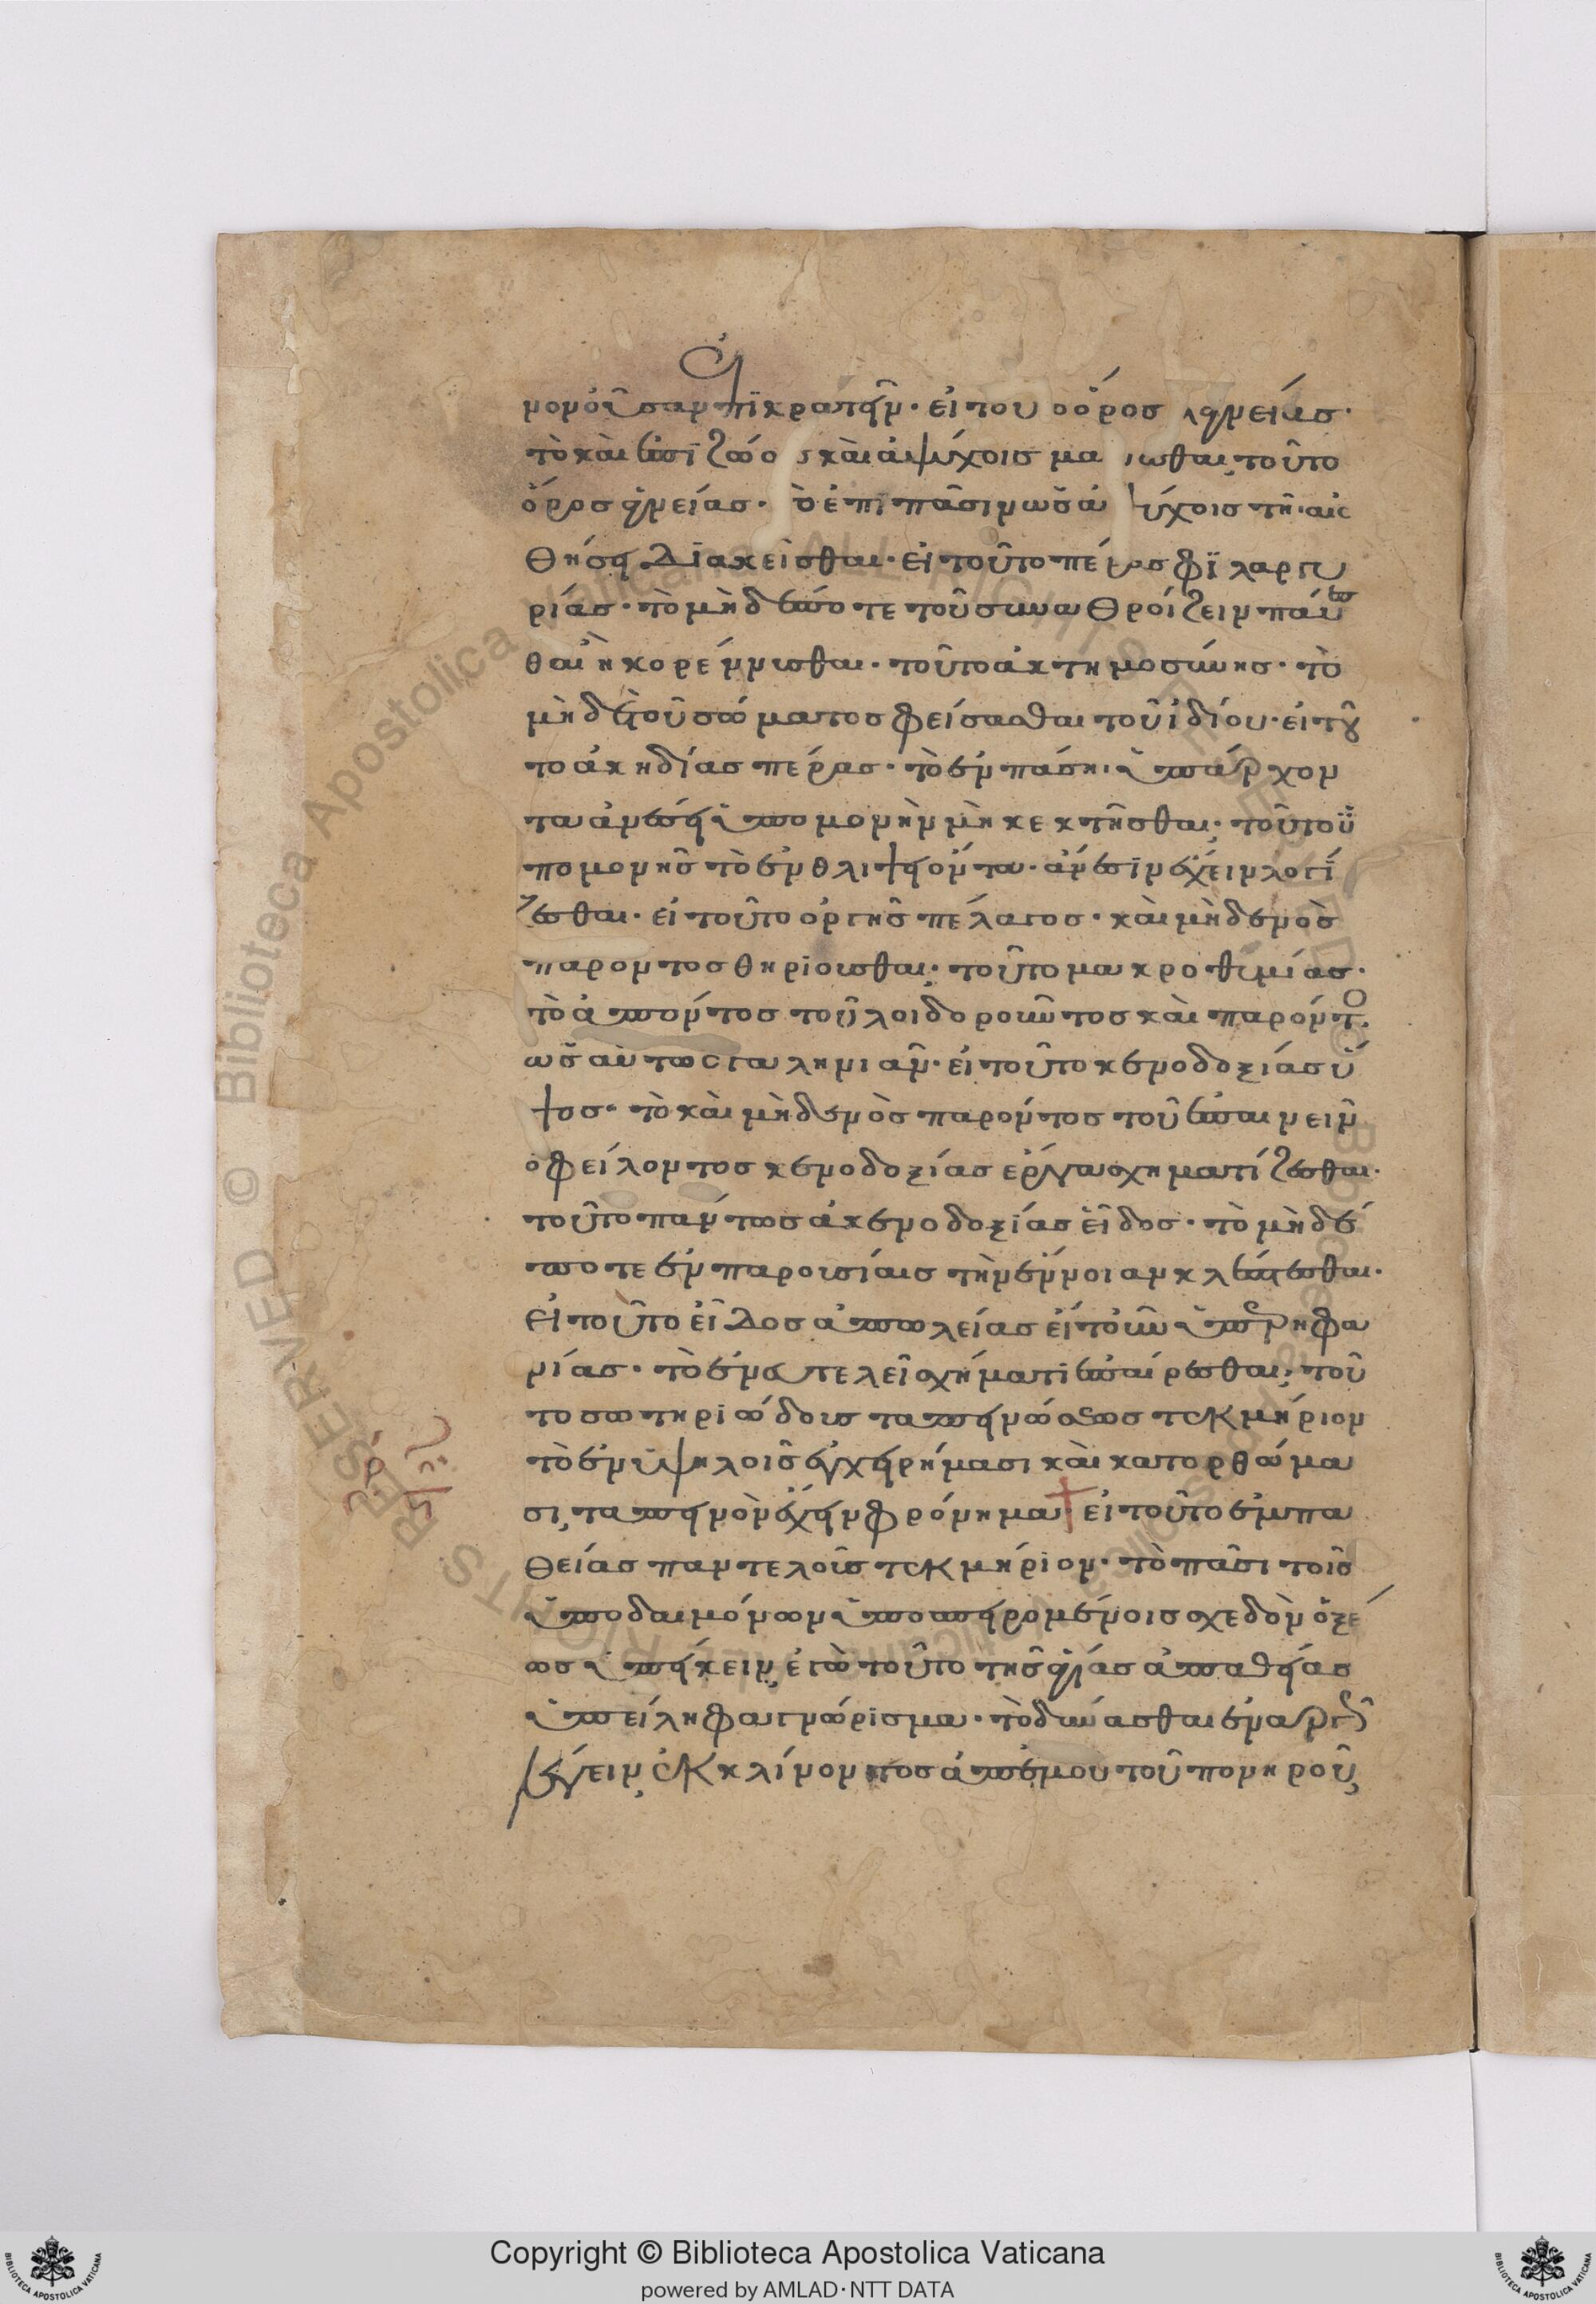 μονὸν σαντϊκρατεῖν· εἰ του ὁ ὅρος λαγνείας·
τὸ καὶ ἐπὶ ζώο ς καὶ ἀψύχοις μα ιωθαι, τοῦτο
ὅρος ἁγνείας· ὁ ἐπὶ πᾶσιν ὡς ἀ ύχοις τῆι αἰσ
θήσει διακεῖσθαι· εἰ τοῦτο πέρας φϊλαργυ
ρίας· τὸ μὴ δέποτε τοῦ συναθροίζειν παύσ
θαι ἢ κορέννυσθαι· τοῦτο ἀκτημοσύνης· τὸ
μὴ δὲ τοῦ σώματος φείσασθαι τοῦ ἰδίου· εἰ τοῦ
το ἀκηδίας πέρας· τὸ ἐν πάσηι ὑπάρχον
τα ἀνέσει ὑπομονὴν μὴ κεκτῆσθαι· τοῦτο ὑ
πομονῆς τὸ ἐν θλίψει ὄντα· ἄνεσιν ἔχειν λογί
ζεσθαι· εἰ τοῦτο ὀργῆς πέλαγος· καὶ μὴδενὸς
παρόντος θηριοῦσθαι· τοῦτο μακροθυμίας·
τὸ ἀπόντος τοῦ λοιδοροῦντος καὶ παρόντο
ὡσαύτως γαληνιᾶν· εἰ τοῦτο κενοδοξίας ὕ
ψος· τὸ καὶ μὴδενὸς παρόντος τοῦ ἐπαινεῖν
ὀφείλοντος κενοδοξίας ἔργα σχηματίζεσθαι·
τοῦτο πάντως ἀκενοδοξίας εἶδος· τὸ μὴδέ
ποτε ἐν παρουσίαις τὴν ἔννοιαν κλέπτεσθαι·
εἰ τοῦτο εἶδος ἀπωλείας εἴτουν ὑπερηφα
νίας· τὸ ἐν εὐτελεῖ σχήματι ἐπαίρεσθαι· τοῦ
το σωτηριώδους ταπεινώσεως τεκμήριον
τὸ ἐν ὑψηλοῖς ἐγχειρήμασι καὶ κατορθώμα
σι, ταπεινὸν ἔχειν φρόνημα· εἰ τοῦτο ἐμπα
θείας παντελοῦς τεκμήριον· τὸ πᾶσι τοῖς
ὑπὸ δαιμόνων ὑποσπειρομένοις σχεδὸν ὀξέ
ως ὑπείκειν, ἐγὼ τοῦτο τῆς ἁγίας ἀπαθείας
ὑπείληφα γνώρισμα· τὸ δύνασθαι ἐναργῶς
λέγειν, ἐκκλίνοντος ἀπ' ἐμοῦ τοῦ πονηροῦ,